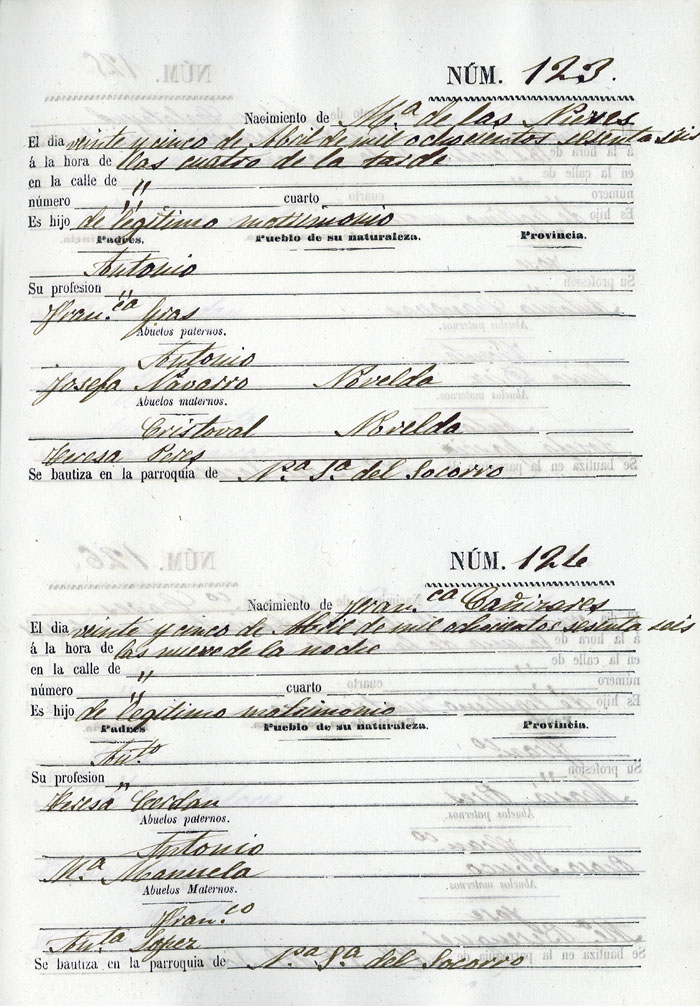 NÚM. 123.
Nacimiento de M.ª de las Nieves
El dia veinte y cinco de Abril de mil ochocientos sesenta seis
á la hora de las cuatro de la tarde
en la calle de "
número " cuarto
Es hijo de legítimo matrimonio
Padres. Pueblo de su naturaleza. Provincia.
Antonio
Su profesion "
Fran.ca Gras
Abuelos paternos.
Antonio
Josefa Navarro Novelda
Abuelos maternos.
Cristoval Novelda
Teresa Peres
Se bautiza en la parroquia de N.ª S.ª del Socorro
NÚM. 124
Nacimiento de Fran.ca Cañizares
El dia veinte y cinco de Abril de mil ochocientos sesenta seis
á la hora de las nueve de la noche
en la calle de "
número " cuarto
Es hijo de legítimo matrimonio
Padres Pueblo de su naturaleza. Provincia.
Ant.o
Su profesion "
Teresa Cerdan
Abuelos paternos.
Antonio
M.ª Manuela
Abuelos Maternos.
Fran.co
Ant.ta Lopez
Se bautiza en la parroquia de N.ª S.ª del Socorro